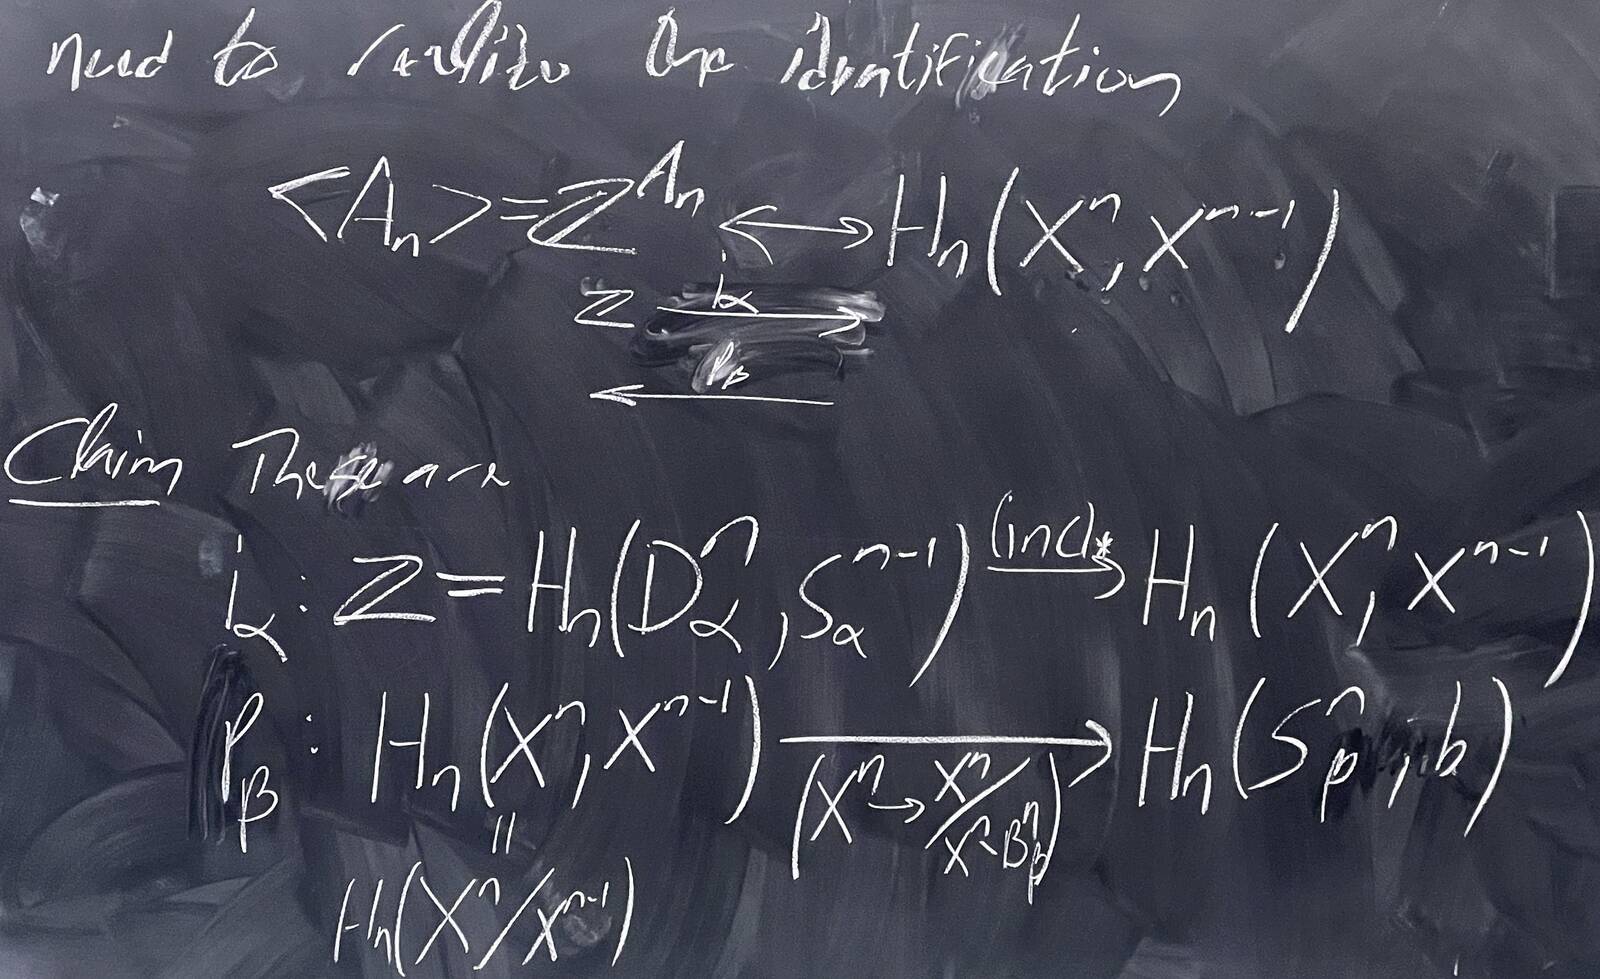 need to realize the identification
<Aₙ> = ℤ^{Aₙ} ↔ Hₙ(Xⁿ, Xⁿ⁻¹)
ℤ →^{i_α}
←^{p_β}
Claim These are
i_α : ℤ = Hₙ(D_αⁿ, S_αⁿ⁻¹) →^{(incl)_*} Hₙ(Xⁿ, Xⁿ⁻¹)
p_β : Hₙ(Xⁿ, Xⁿ⁻¹) → Hₙ(S_βⁿ, b)
(Xⁿ → Xⁿ/Xⁿ-B_βⁿ)
||
Hₙ(Xⁿ/Xⁿ⁻¹)